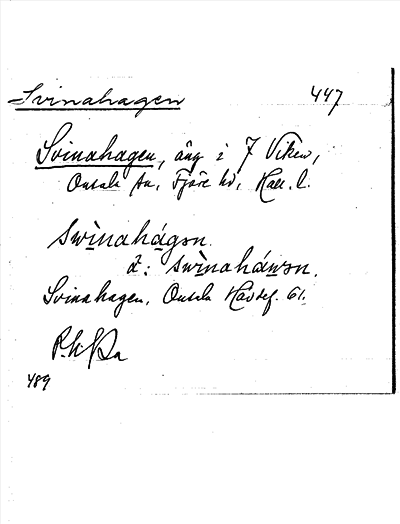 Svinahagen 447
Svinahagen, äng i 7 Viken,
Onsala sn, Fjäre hd, Hall. l.
swìnahágən.
ä: swìnaháwən.
Svinahagen, Onsala Havsef. 61.
489